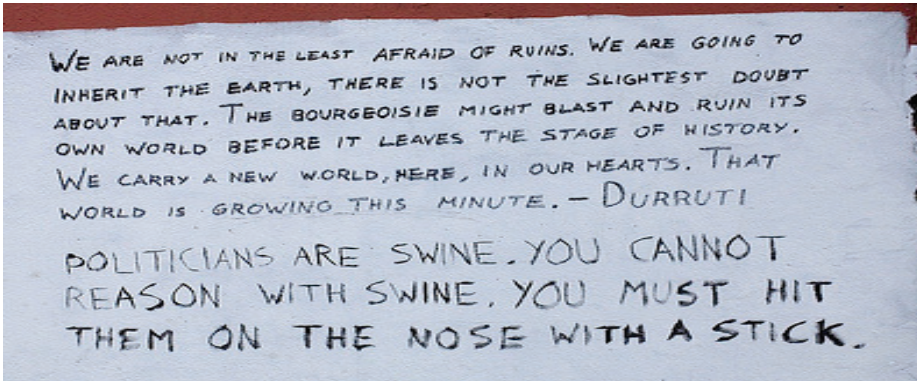 WE ARE NOT IN THE LEAST AFRAID OF RUINS. WE ARE GOING TO
INHERIT THE EARTH, THERE IS NOT THE SLIGHTEST DOUBT
ABOUT THAT. THE BOURGEOISIE MIGHT BLAST AND RUIN ITS
OWN WORLD BEFORE IT LEAVES THE STAGE OF HISTORY.
WE CARRY A NEW WORLD, HERE, IN OUR HEARTS. THAT
WORLD IS GROWING THIS MINUTE. – DURRUTI
POLITICIANS ARE SWINE. YOU CANNOT
REASON WITH SWINE. YOU MUST HIT
THEM ON THE NOSE WITH A STICK.